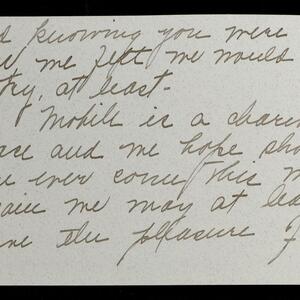 knowing you were
we felt we would
try, at least.
Mobile is a
and we hope
ever come this
we may at
the pleasure